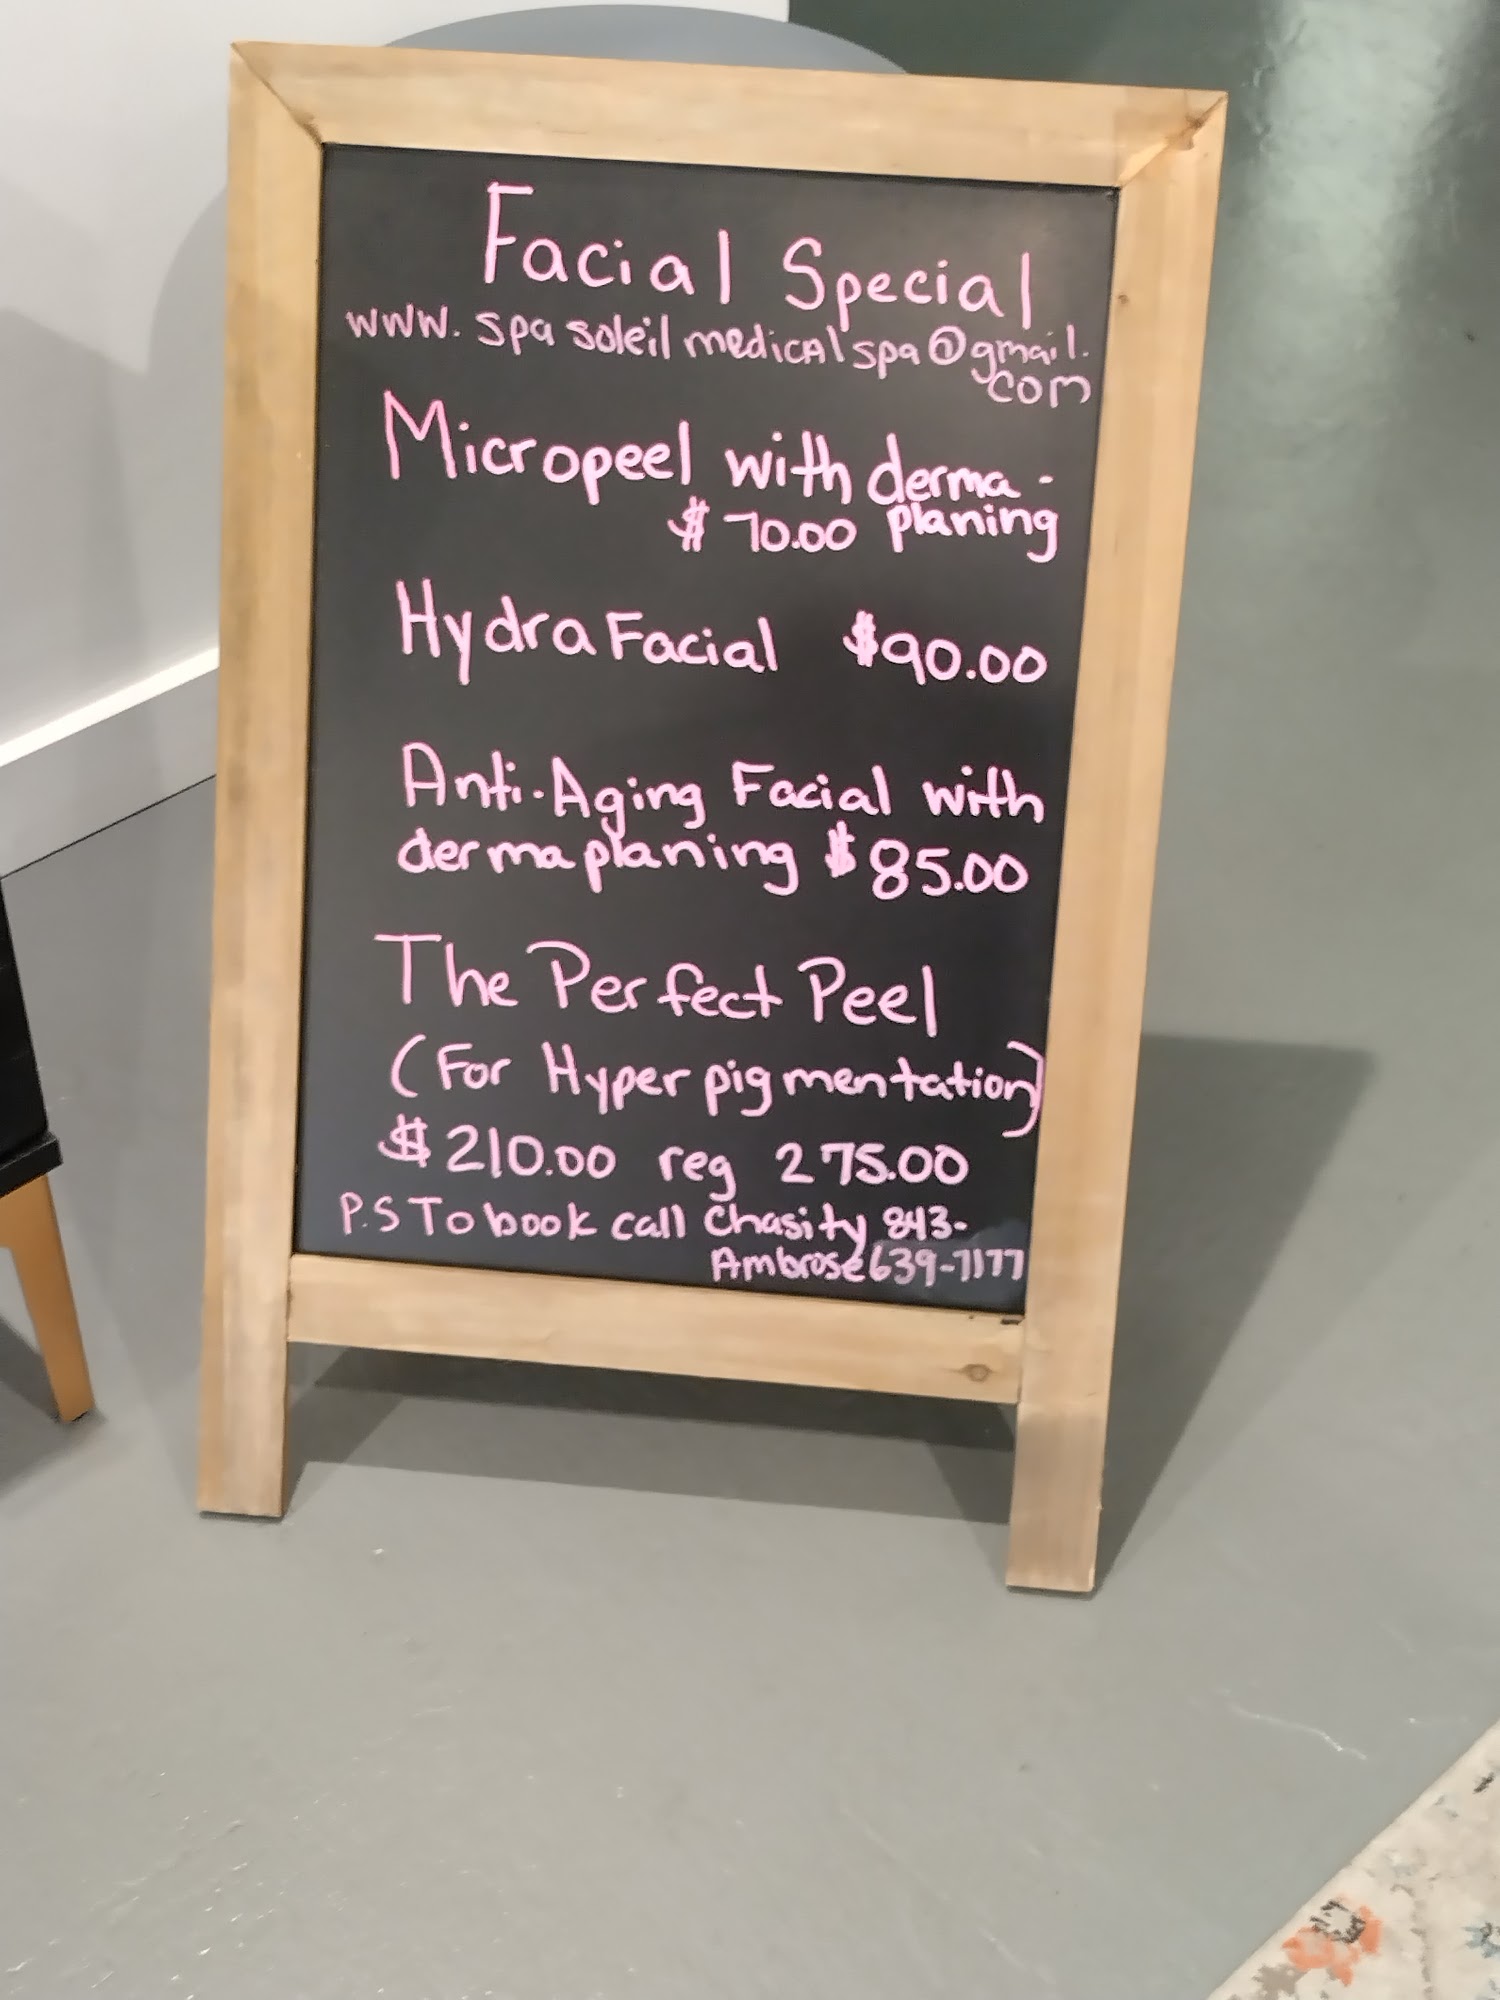 Facial Special
www.spasoleilmedicalspa@gmail.
com
Micropeel with derma-
$70.00 planing
HydraFacial $90.00
Anti-Aging Facial with
dermaplaning $85.00
The Perfect Peel
(For Hyperpigmentation)
$210.00 reg 275.00
P.S To book call Chasity 843-
Ambrose 639-7177